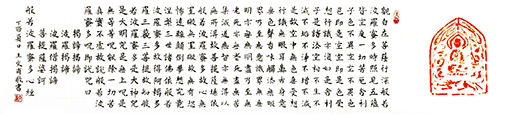 觀自在菩薩行深般若
波羅蜜多時照見五蘊
皆空度一切苦厄舍利
子色不異空空不異色
色即是空空即是色受
想行識亦復如是舍利
子是諸法空相不生不
滅不垢不淨不增不減
是故空中無色無受想
行識無眼耳鼻舌身意
無色聲香味觸法無眼
界乃至無意識界無無
明亦無無明盡乃至無
老死亦無老死盡無苦
集滅道無智亦無得以
無所得故菩提薩埵依
般若波羅蜜多故心無
罣礙無罣礙故無有恐
怖遠離顛倒夢想究竟
涅槃三世諸佛依般若
波羅蜜多故得阿耨多
羅三藐三菩提故知般
若波羅蜜多是大神咒
是大明咒是無上咒是
無等等咒能除一切苦
真實不虛故說般若波
羅蜜多咒即說咒曰
揭諦揭諦
波羅揭諦
波羅僧揭諦
菩提薩婆訶
般若波羅蜜多心經